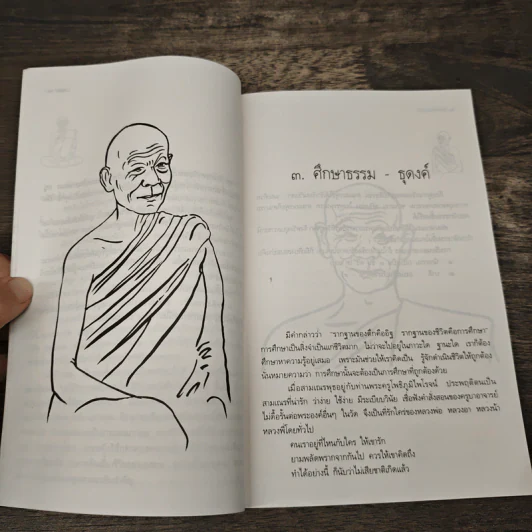 ๓. ศึกษาธรรม - ธุดงค์
มีคำกล่าวว่า "รากฐานของตึกคืออิฐ รากฐานของชีวิตคือการศึกษา"
การศึกษาเป็นสิ่งจำเป็นแก่ชีวิตมาก ไม่ว่าจะไปอยู่ในภาวะใด ฐานะใด เราก็ต้อง
ศึกษาหาความรู้อยู่เสมอ เพราะมันช่วยให้เราคิดเป็น รู้จักดำเนินชีวิตให้ถูกต้อง
นั่นหมายความว่า การศึกษานั้นจะต้องเป็นการศึกษาที่ถูกต้องด้วย
เมื่อสามเณรพุธอยู่กับท่านพระครูโพธิภูมิไพโรจน์ ประพฤติตนเป็น
สามเณรที่น่ารัก ว่าง่าย ใช้ง่าย มีระเบียบวินัย เชื่อฟังคำสั่งสอนของครูบาอาจารย์
ไม่ดื้อรั้นต่อพระองค์อื่นๆ ในวัด จึงเป็นที่รักใคร่ของหลวงพ่อ หลวงอา หลวงน้า
หลวงพี่โดยทั่วไป
คนเราอยู่ที่ไหนกับใคร ให้เขารัก
ยามพลัดพรากจากกันไป ควรให้เขาคิดถึง
ทำได้อย่างนี้ ก็นับว่าไม่เสียชาติเกิดแล้ว